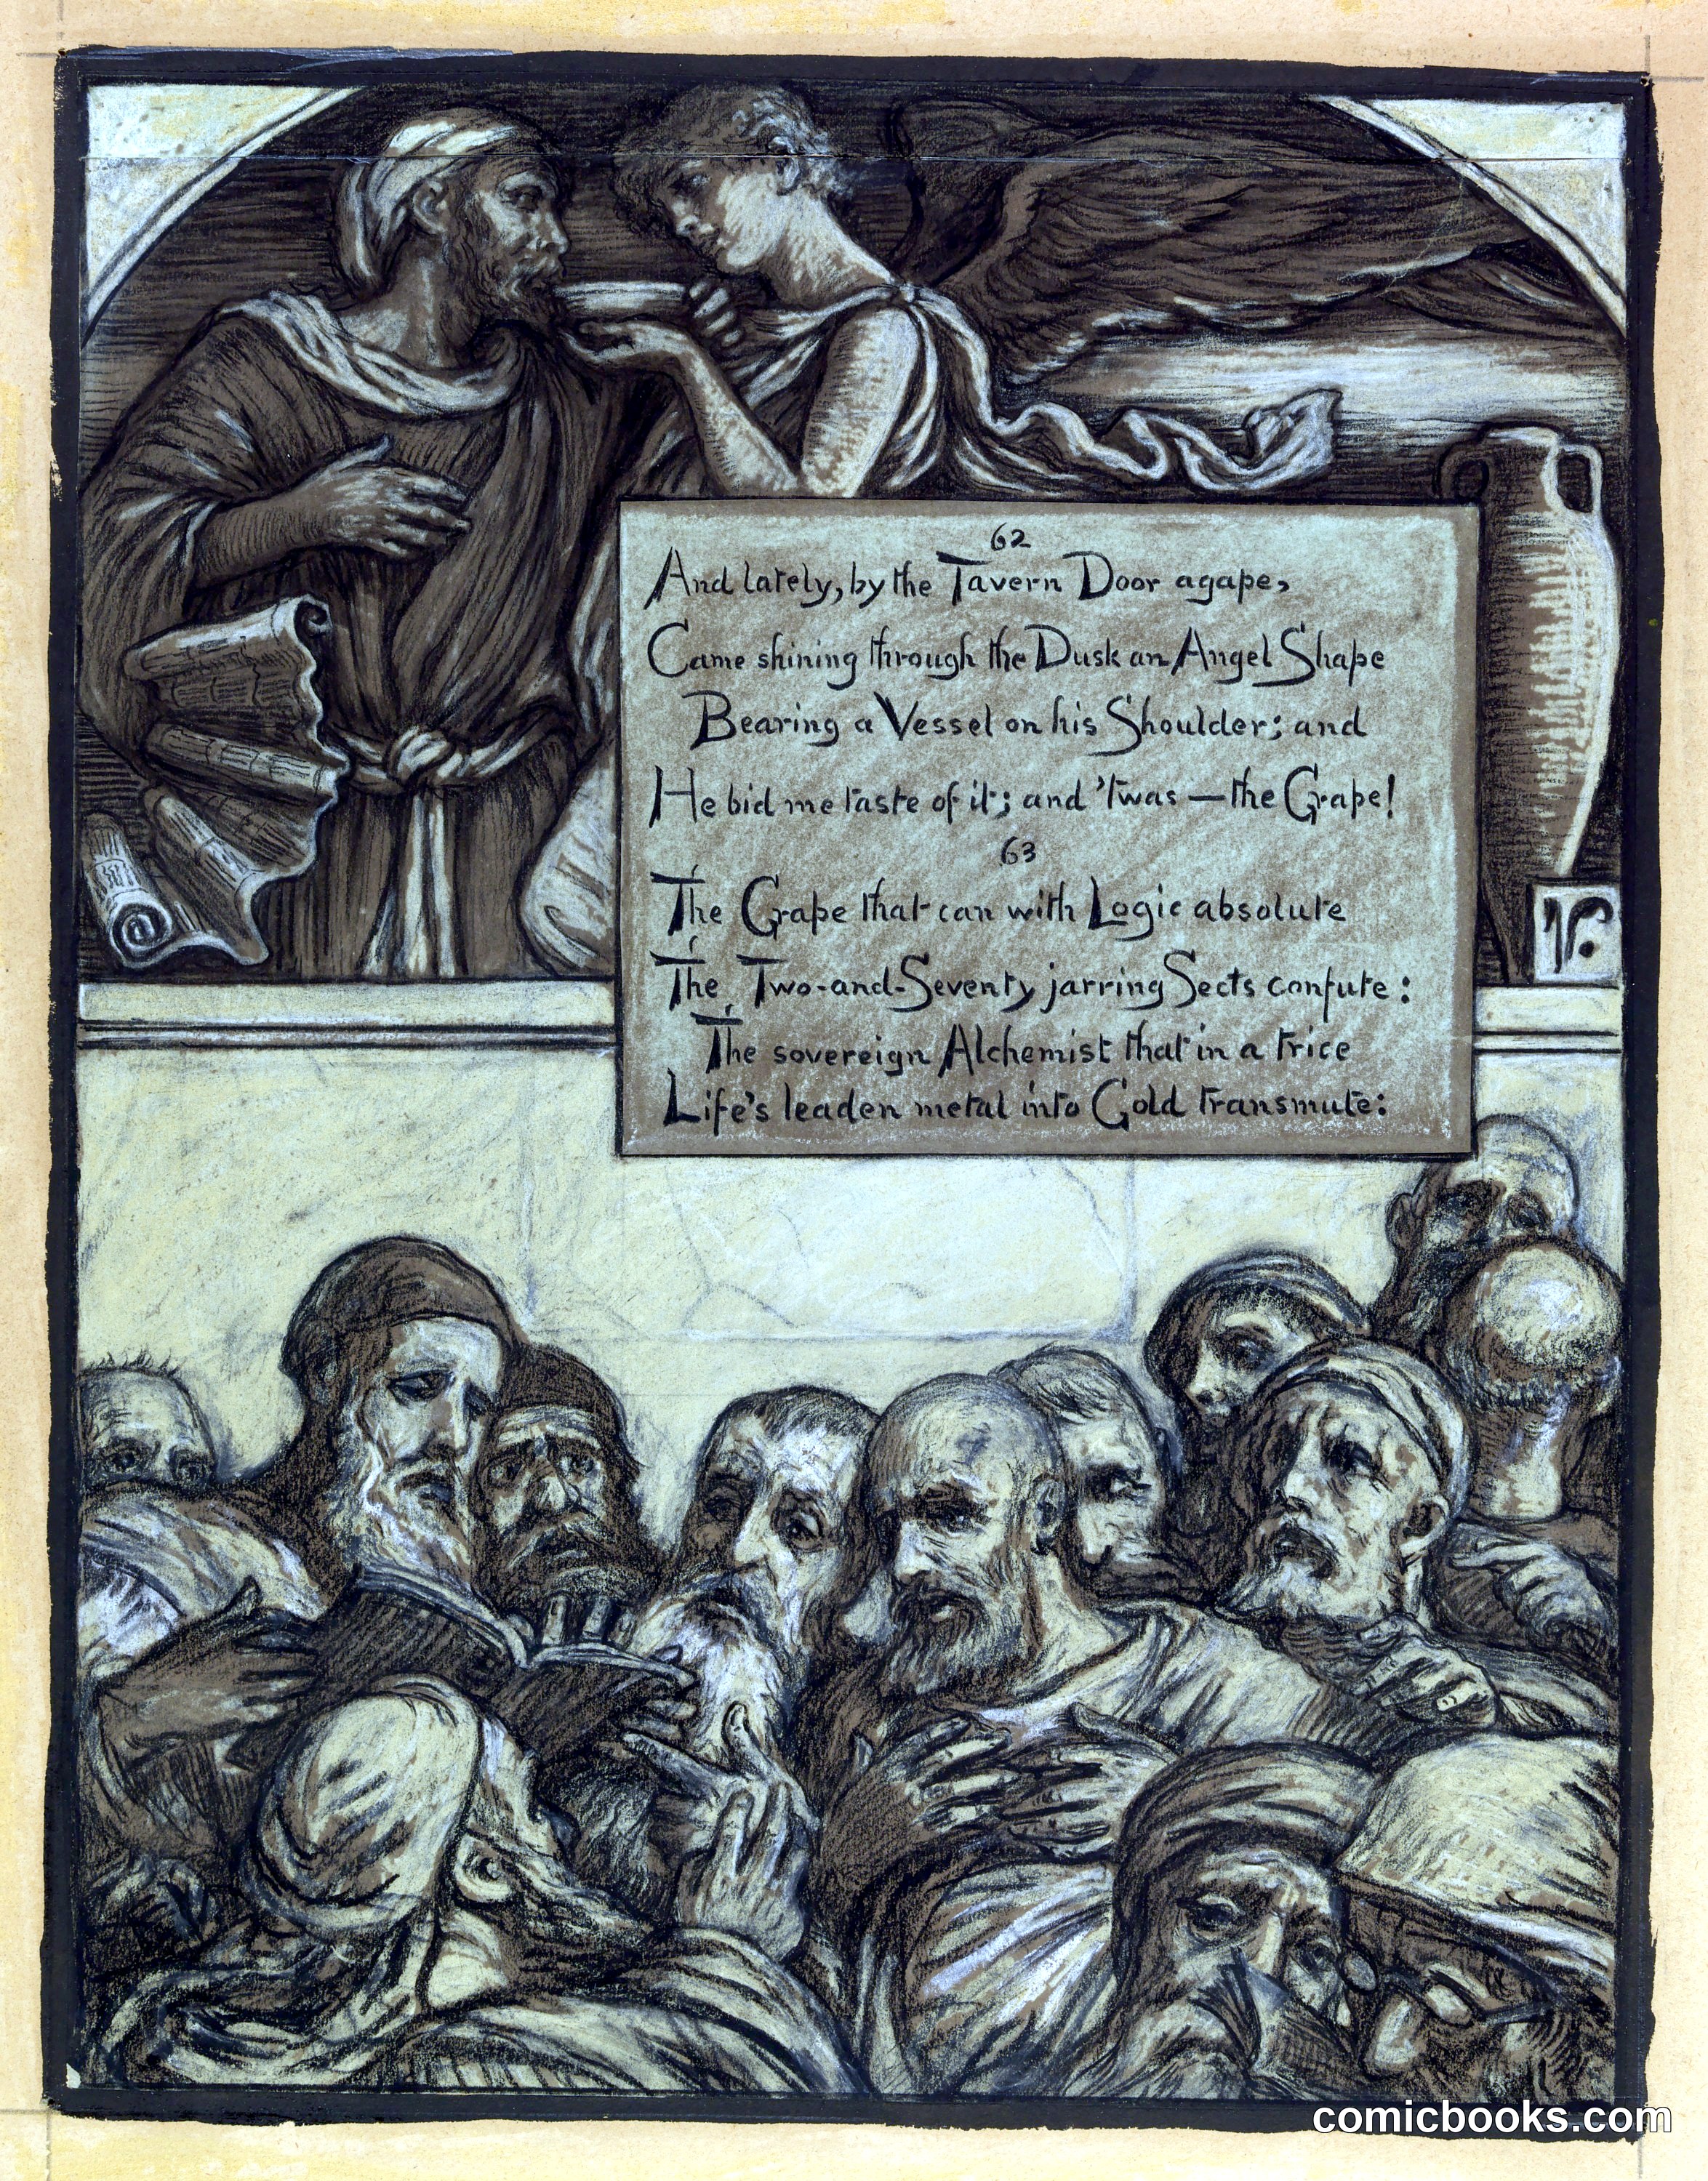 62
And lately, by the Tavern Door agape,
Came shining through the Dusk an Angel Shape
Bearing a Vessel on his Shoulder; and
He bid me taste of it; and 'twas — the Grape!
63
The Grape that can with Logic absolute
The Two-and-Seventy jarring Sects confute:
The sovereign Alchemist that in a trice
Life's leaden metal into Gold transmute:
V.
comicbooks.com